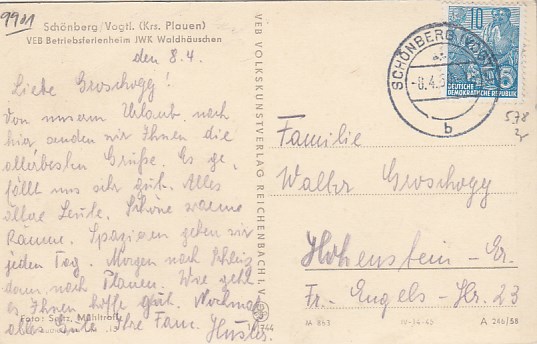 9901
Schönberg/Vogtl. (Krs. Plauen)
VEB Betriebsferienheim JWK Waldhäuschen
den 8.4.
Liebe Groschopp!
Von unserem Urlaub nach
hier senden wir Ihnen die
allerbesten Grüße. Es ge-
fällt uns sehr gut. Alles
liebe Leute. Schöne warme
Räume. Spazieren gehen wir
jeden Tag. Morgen nach Schleiz
dann nach Plauen. Wie geht
es Ihnen hoffe gut. Nochmals
alles Gute Ihre Fam. Hüsler.
Foto: Seitz, Mühltroff
VEB VOLKSKUNSTVERLAG REICHENBACH I. V.
744
SCHÖNBERG (VOGTL)
-8.4.5
b
10
5
DEUTSCHE
DEMOKRATISCHE REPUBLIK
578
Familie
Walter Groschopp
Hohenstein-Er.
Fr. Engels-Str. 23
M 863
IV-14-45
A 246/58